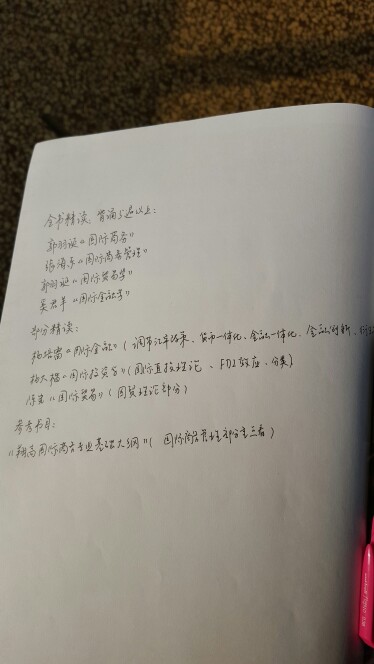 全书精读，背诵5遍以上：
郭羽诞《国际商务》
《国际商务管理》
郭羽诞《国际贸易学》
《国际金融学》
部分精读：
杨培雷《国际金融》（调节汇率政策、货币一体化、金融一体化、金融创新、
杨大楷《国际投资学》（国际直接理论、FDI效应、分类）
《国际贸易》（国贸理论部分）
参考书目：
《翔高国际商务专业基础大纲》（国际商务管理部分重点看）